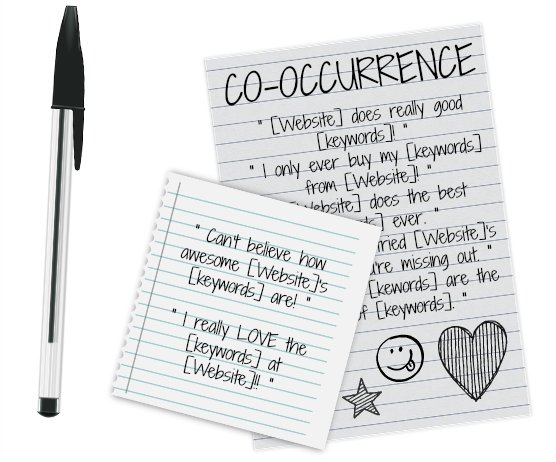 CO-OCCURRENCE
" [Website] does really good
[keywords]! "
" I only ever buy my [keywords]
from [Website]! "
[Website] does the best
ever. "
[Website]'s
missing out. "
[kewords] are the
[keywords]. "
" Can't believe how
awesome [Website]'s
[keywords] are! "
" I really LOVE the
[keywords] at
[Website]!! "